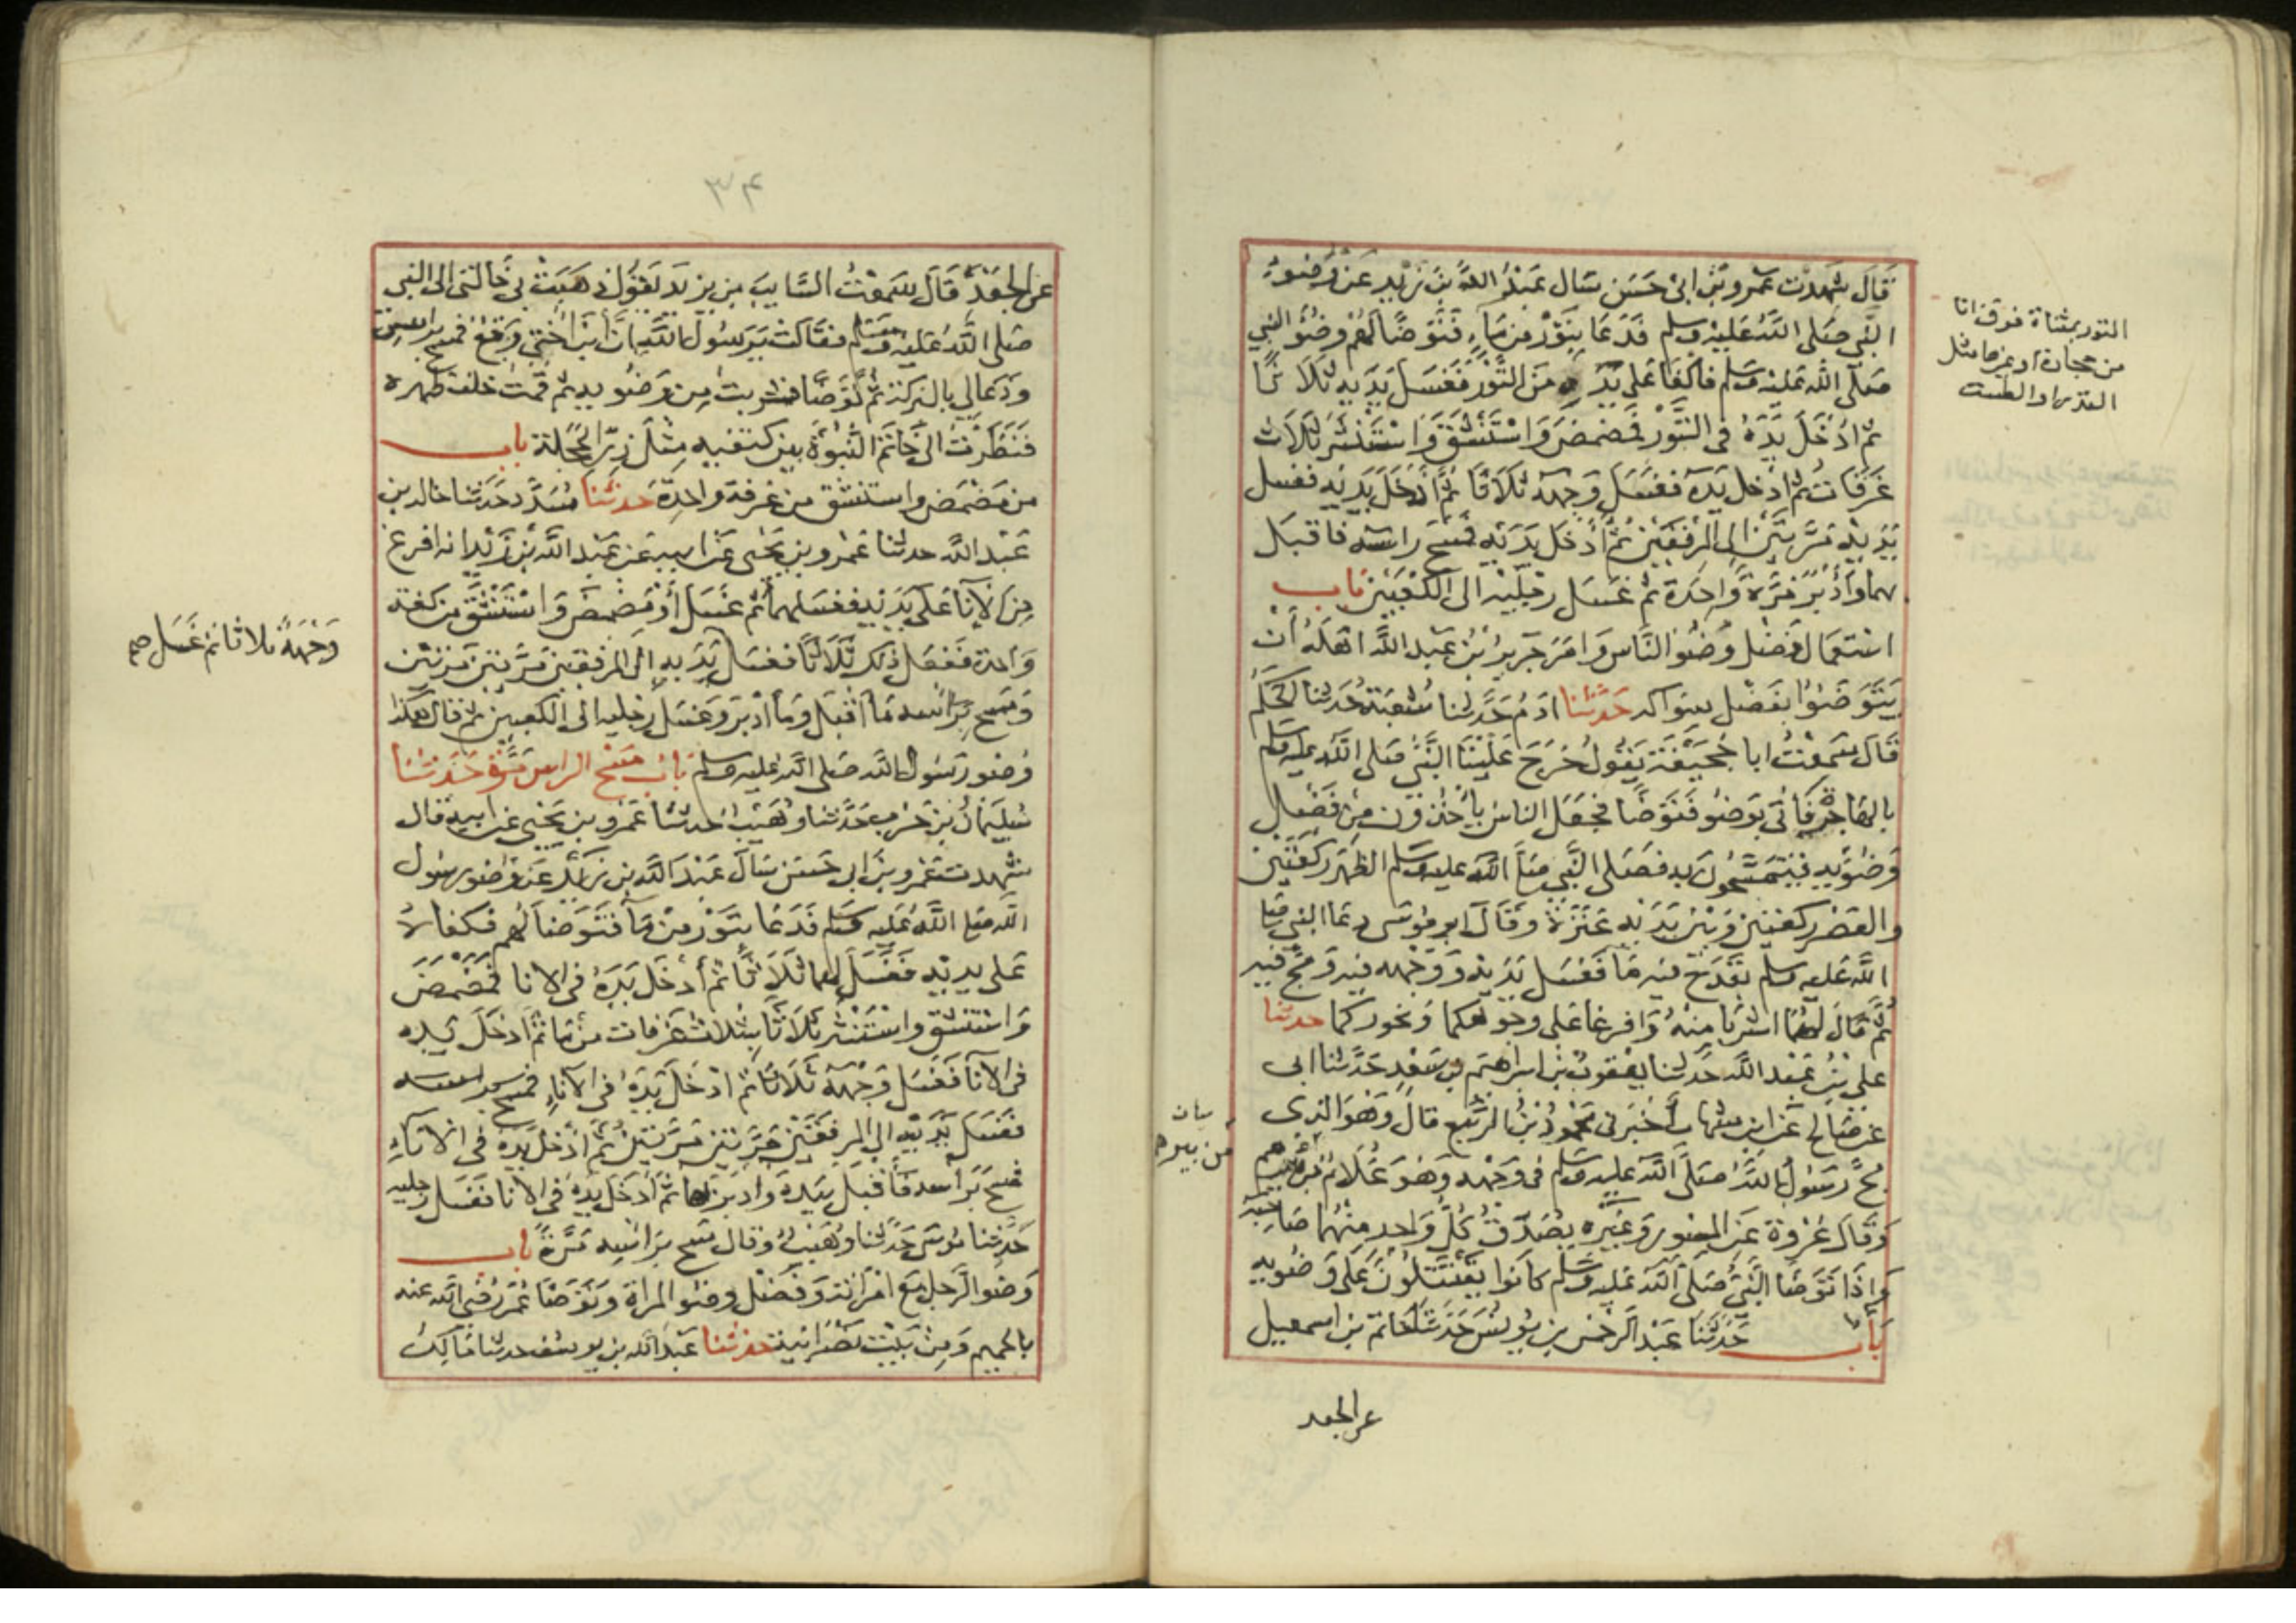 قَالَ شَهِدْتُ عَمْرو بْنَ ابى حَسَن سَال عَبْدَ اللَّهِ بْنَ زَيْدٍ عَنْ وُضُوءِ
النَّبِي صَلى اللَّهُ عَلَيْهِ وسلم فَدَعَا بِتَوْرٍ مِن مَاءٍ فَتَوَضَّا لَهُمْ وضُوَ النَّبِي
صَلَّى الله عَلَيْه وَسَلم فاكفَا عَلى يَدِهِ مِنَ التَّوْرِ فَغَسَلَ يَدَيْهِ ثَلَاثًا
ثم ادْخَلَ يَدَهُ فى التَّوْرِ فَمَضْمَضَ وَاسْتَنْشَقَ وَاسْتَنْثَرَ ثَلَاثَ
غَرَفَاتٍ ثُم ادْخَل يَدَهُ فَغَسَلَ وَجْهَهُ ثَلَاثًا ثُمَّ أدْخَلَ يَدَيْهِ فَغَسل
يَدَيْهِ مَرَّتَيْنِ الى المِرْفَقَيْنِ ثُمَّ أَدْخَلَ يَدَيْهِ فَمَسَحَ رَاسَه فاقبَلَ
بهما وَادْبَرَ مَرَّةً وَاحِدَة ثم غَسَل رِجْلَيْهِ الى الكَعْبَيْنِ بَاب
اسْتِعْمَال فَضْل وَضُو النَّاس وَامَرَ جَرِيرُ بْنُ عَبْدِ اللَّهِ اهْلَهُ أَنْ
يَتَوَضَّوا بفَضْل سِوَاكه حَدثَنا ادَمُ حَدَّثنا شُعْبَةُ حَدثنا الحَكَمُ
قَالَ سَمِعْتُ ابا جُحَيْفَة يَقُولُ خَرَجَ عَلَيْنَا النَّبِيُّ صَلى اللَّهُ عليه وسلم
بالهَاجِرَةِ فَأُتِيَ بِوَضُو فَتَوَضَّا فجَعَلَ الناسُ يَأْخُذُونَ مِنْ فَضْل
وَضُوئِهِ فَيَتَمَسَّحُونَ بِهِ فَصَلى النَّبِي صَلَّى الله عليه وسَلم الظهْرَ رَكعَتَيْن
والعَصْرَ ركعَتَيْنِ وَبَيْنَ يَدَيْهِ عَنَزَةٌ وَقَالَ ابو مُوسَى دعَا النبي صلى
اللَّه عَليه وسلم بقَدَحٍ فيه مَا فَغَسَل يَدَيْهِ وَوَجْهه فيهِ وَمَجَّ فيهِ
ثُمَّ قَالَ لَهُمَا اشْرَبَا مِنْهُ وَافرِغا عَلى وجوهكُمَا ونحُورِكما حدثنا
عَلي بْنُ عَبْد اللَّه حَدَّثنا يَعْقُوبُ بْنُ ابراهِيم بن سَعْدٍ حَدَّثنا ابى
عَنْ صَالِحٍ عَنِ ابْنِ شِهَابٍ أَخْبَرَنى مَحْمُودُ بْنُ الرَّبِيعِ قَالَ وَهُوَ الذى
مَجَّ رَسُولُ اللَّهِ صَلَّى اللَّه عليه وسَلم فى وَجْهِهِ وَهُوَ غُلَامٌ مِنْ بِئرِهِم
وَقَالَ عُرْوَة عَنِ المِسْوَرِ وَغَيْرِهِ يُصَدِّقُ كُلُّ وَاحِدٍ مِنْهُمَا صَاحِبَهُ
وَإذَا تَوَضَّا النَّبِيُّ صَلَّى اللَّه عَلَيْهِ وسَلم كَانوا يَقْتَتِلُونَ عَلَى وَضُوئِهِ
بَاب حَدَّثَنَا عَبْدُ الرَّحْمٰنِ بن يُونُسَ حَدَّثَنَا حَاتم بن اسمعيل
عن الجعد
التور بمثناة فوق انا
من حجارة او غيرها مثل
القدر او الطست
من بيرهم
٣٤
عَنِ الجَعْدِ قَالَ سَمِعْتُ السَّايِبَ بن يزيدَ يَقُولُ ذَهَبَتْ بى خَالتى الى النبى
صَلى اللَّهُ عَليه وسَلم فقَالتْ يرَسُول اللَّه انَّ ابْنَ اُخْتِى وَقِعٌ فمسَح براسى
وَدَعَا لِي بالبَرَكة ثُم تَوَضَّا فشربتُ مِن وَضُوئِهِ ثم قُمتُ خلفَ ظهره
فَنَظَرْتُ الى خَاتم النُّبُوَّةِ بين كتفيهِ مِثْلَ زِرِّ الحَجَلَةِ باب
من مَضْمَضَ واستنشق من غرفة واحِدَة حَدثنَا مُسَدَّد حَدَثنا خالد بن
عَبْد اللَّه حدثنا عَمْرو بن يَحْيى عَن ابيه عَن عَبْد اللَّه بْنِ زَيْد انه افرغ
مِنَ الإنَا عَلَى يَدَيْهِ فغسَلهما ثم غَسَلَ أوْ مَضْمَضَ وَاسْتَنْشَقَ من كَفة
وَاحدة فَفَعَل ذلك ثَلَاثًا فغسَل يَدَيهِ الى المرفقين مَرَّتين مَرتين
وَمَسَحَ بِرَأسِه مَا اَقْبَلَ وَمَا أدْبَرَ وَغَسَلَ رِجليه الى الكعبين ثم قال هكذا
وُضو رَسُولِ اللَّه صَلى الله عليه وسلم بَاب مَسْحِ الراس مَرَّة حَدَّثنَا
سُلَيمَانُ بْنُ حَرْبٍ حَدَّثنا وُهَيْبٌ حَدثنا عَمْرو بن يَحْيى عَن ابيه قال
شَهِدتُ عَمْرو بن ابى حَسَن سَالَ عَبْدَ اللَّه بن زَيْدٍ عَن وُضو رسُول
الله صلى اللَّهُ عَلَيه وسَلم فَدَعَا بتَوْر مِنْ مَا فَتَوَضَّا لهم فكفاهُ
عَلى يديْهِ فَغَسَلَهُما ثَلَاثًا ثم أدْخَلَ يَدَهُ فى الانا فمَضْمَضَ
وَاسْتنشق واسْتَنْثَرَ ثَلَاثًا بِثَلَاثِ غَرَفات مِنْ مَا ثم أدخَلَ يَدَهُ
فى الانَا فَغَسَلَ وَجْهَهُ ثَلَاثًا ثُم ادْخَلَ يَدَهُ فى الانَاءِ
فَغَسَلَ يَدَيْهِ الى المِرفَقَيْنِ مَرَّتَيْنِ مَرَّتَيْنِ ثم أدْخَلَ يَدَهُ فى الانَاءِ
فمَسَحَ بَرَأسِه فأقبَلَ بيَدِهِ وادبَر بها ثم أدْخَلَ يَدَهُ فى الانا فغَسَل رِجليه
حَدَّثنا مُوسَى حَدَّثنا وُهَيْبٌ وقال مَسَحَ بِرَاسِهِ مَرَّةً باب
وَضو الرَّجل مَعَ امْرَاته وَفَضْل وضو المراة وتَوَضّا عُمَرُ رضي الله عنه
بالحميم وَمِنْ بَيْتِ نَصْرَانية حدثنا عَبْد الله بن يوسف حدثنا مَالِكٌ
وَجْهَهُ ثلاثا ثم غَسَل صح